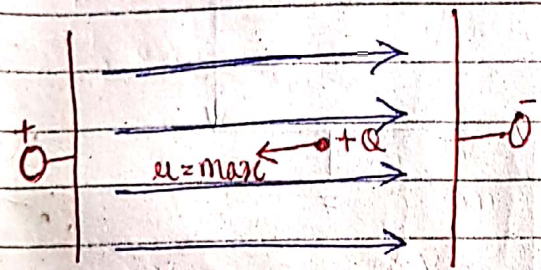 + -
+Q
u=max